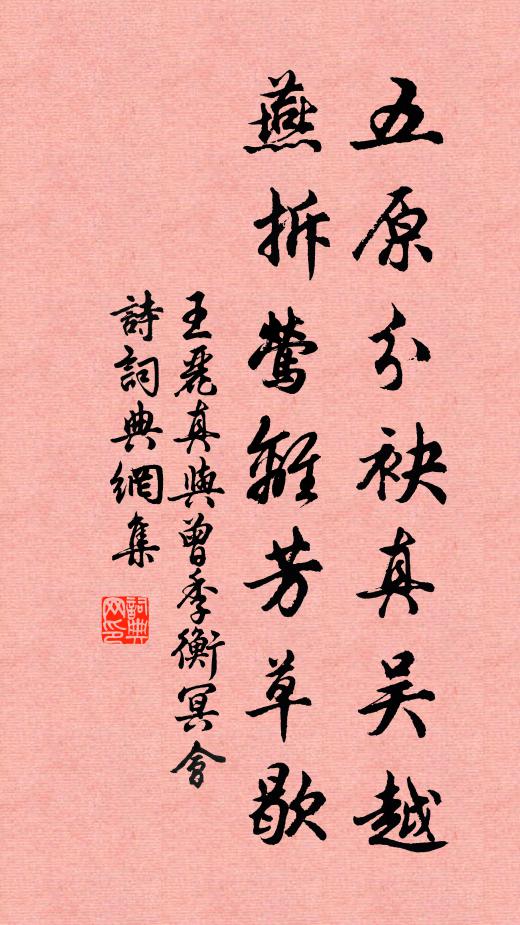 五原分袂真吴越
燕拆莺離芳草歇
王麗真與曾季衡冥會
詩詞典網集
詞典網印